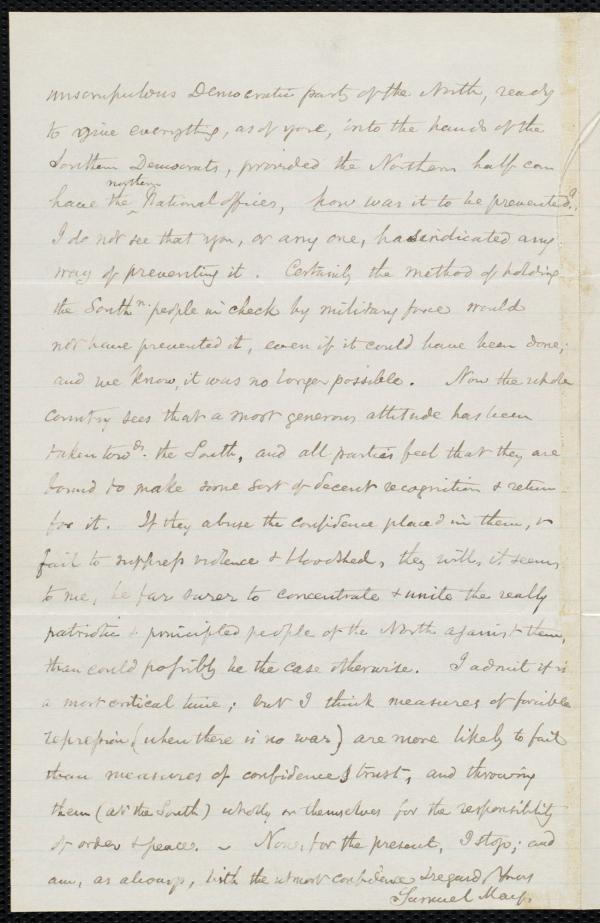 unscrupulous Democratic party of the North, ready
to give everything, as of yore, into the hands of the
Southern Democrats, provided the Northern half can
northern
have the ^ National offices, how was it to be prevented?
I do not see that you, or any one, has indicated any
way of preventing it. Certainly the method of holding
the South^n. people in check by military force would
not have prevented it, even if it could have been done;
and we know, it was no longer possible. Now the whole
country sees that a most generous attitude has been
taken tow^ds. the South, and all parties feel that they are
bound to make some sort of decent recognition & return
for it. If they abuse the confidence placed in them, &
fail to suppress violence & bloodshed, they will, it seems
to me, be far surer to concentrate & unite the really
patriotic & principled people of the North against them,
than could possibly be the case otherwise. I admit it is
a most critical time; but I think measures of forcible
repression (when there is no war) are more likely to fail
than measures of confidence & trust, and throwing
them (at the South) wholly on themselves for the responsibility
of order & peace. – Now, for the present, I stop; and
am, as always, with the utmost confidence & regard, Yours
Samuel May.